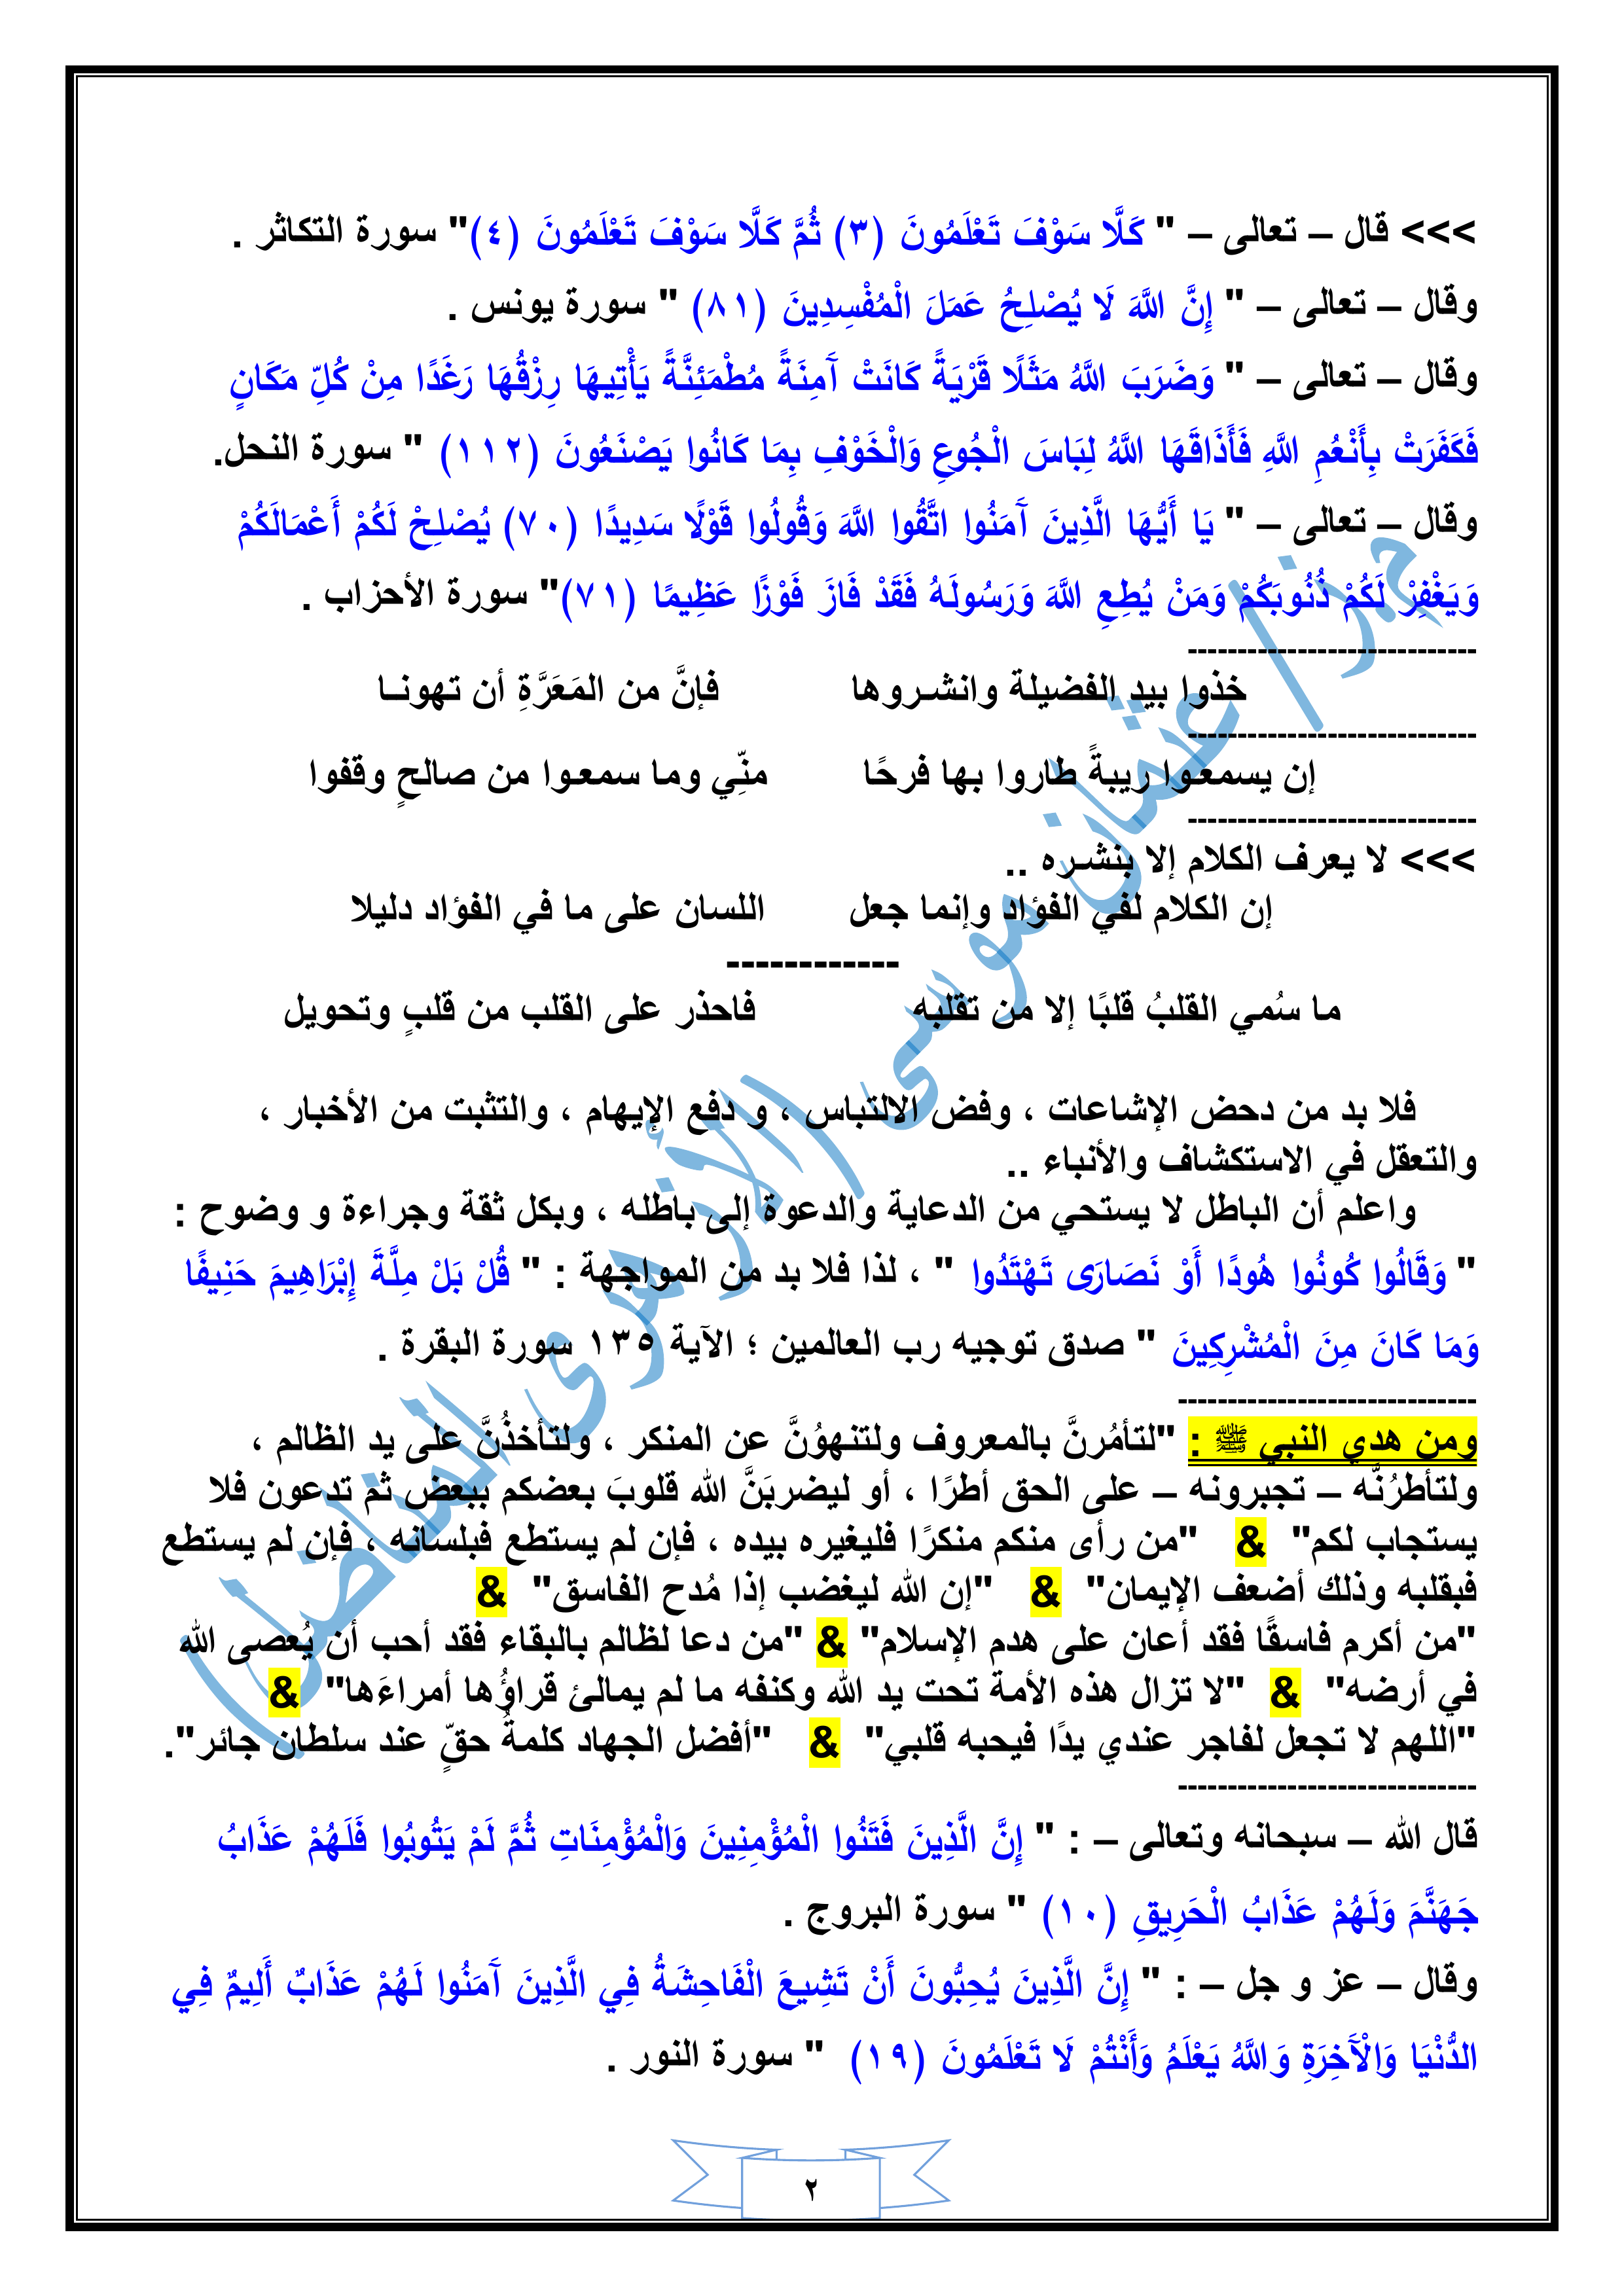 >>> قال – تعالى – " كَلَّا سَوْفَ تَعْلَمُونَ (٣) ثُمَّ كَلَّا سَوْفَ تَعْلَمُونَ (٤)" سورة التكاثر .
وقال – تعالى – " إِنَّ اللَّهَ لَا يُصْلِحُ عَمَلَ الْمُفْسِدِينَ (٨١) " سورة يونس .
وقال – تعالى – " وَضَرَبَ اللَّهُ مَثَلًا قَرْيَةً كَانَتْ آَمِنَةً مُطْمَئِنَّةً يَأْتِيهَا رِزْقُهَا رَغَدًا مِنْ كُلِّ مَكَانٍ
فَكَفَرَتْ بِأَنْعُمِ اللَّهِ فَأَذَاقَهَا اللَّهُ لِبَاسَ الْجُوعِ وَالْخَوْفِ بِمَا كَانُوا يَصْنَعُونَ (١١٢) " سورة النحل.
وقال – تعالى – " يَا أَيُّهَا الَّذِينَ آَمَنُوا اتَّقُوا اللَّهَ وَقُولُوا قَوْلًا سَدِيدًا (٧٠) يُصْلِحْ لَكُمْ أَعْمَالَكُمْ
وَيَغْفِرْ لَكُمْ ذُنُوبَكُمْ وَمَنْ يُطِعِ اللَّهَ وَرَسُولَهُ فَقَدْ فَازَ فَوْزًا عَظِيمًا (٧١)" سورة الأحزاب .
-----------------------------
خذوا بيد الفضيلة وانشـروها فإنَّ من المَعَرَّةِ أن تهونــا
-----------------------------
إن يسمعـوا ريبةً طاروا بها فرحًا منِّي وما سمعـوا من صالحٍ وقفوا
-----------------------------
>>> لا يعرف الكلام إلا بنشـره ..
إن الكلام لفي الفؤاد وإنما جعل اللسان على ما في الفؤاد دليلا
------------
ما سُمي القلبُ قلبًا إلا من تقلبه فاحذر على القلب من قلبٍ وتحويل
فلا بد من دحض الإشاعات ، وفض الالتباس ، و دفع الإيهام ، والتثبت من الأخبار ،
والتعقل في الاستكشاف والأنباء ..
واعلم أن الباطل لا يستحي من الدعاية والدعوة إلى باطله ، وبكل ثقة وجراءة و وضوح :
" وَقَالُوا كُونُوا هُودًا أَوْ نَصَارَى تَهْتَدُوا " ، لذا فلا بد من المواجهة : " قُلْ بَلْ مِلَّةَ إِبْرَاهِيمَ حَنِيفًا
وَمَا كَانَ مِنَ الْمُشْرِكِينَ " صدق توجيه رب العالمين ؛ الآية ١٣٥ سورة البقرة .
------------------------------
ومن هدي النبي ﷺ : "لتأمُرنَّ بالمعروف ولتنهوُنَّ عن المنكر ، ولتأخذُنَّ على يد الظالم ،
ولتأطرُنَّه – تجبرونه – على الحق أطرًا ، أو ليضربَنَّ الله قلوبَ بعضكم ببعض ثم تدعون فلا
يستجاب لكم" & "من رأى منكم منكرًا فليغيره بيده ، فإن لم يستطع فبلسانه ، فإن لم يستطع
فبقلبه وذلك أضعف الإيمان" & "إن الله ليغضب إذا مُدح الفاسق" &
"من أكرم فاسقًا فقد أعان على هدم الإسلام" & "من دعا لظالم بالبقاء فقد أحب أن يُعصى الله
في أرضه" & "لا تزال هذه الأمة تحت يد الله وكنفه ما لم يمالئ قراؤُها أمراءَها" &
"اللهم لا تجعل لفاجر عندي يدًا فيحبه قلبي" & "أفضل الجهاد كلمةُ حقٍّ عند سلطان جائر".
------------------------------
قال الله – سبحانه وتعالى – : " إِنَّ الَّذِينَ فَتَنُوا الْمُؤْمِنِينَ وَالْمُؤْمِنَاتِ ثُمَّ لَمْ يَتُوبُوا فَلَهُمْ عَذَابُ
جَهَنَّمَ وَلَهُمْ عَذَابُ الْحَرِيقِ (١٠) " سورة البروج .
وقال – عز و جل – : " إِنَّ الَّذِينَ يُحِبُّونَ أَنْ تَشِيعَ الْفَاحِشَةُ فِي الَّذِينَ آَمَنُوا لَهُمْ عَذَابٌ أَلِيمٌ فِي
الدُّنْيَا وَالْآَخِرَةِ وَاللَّهُ يَعْلَمُ وَأَنْتُمْ لَا تَعْلَمُونَ (١٩) " سورة النور .
٢
عثمان موسى (الأزهرى المناضل)